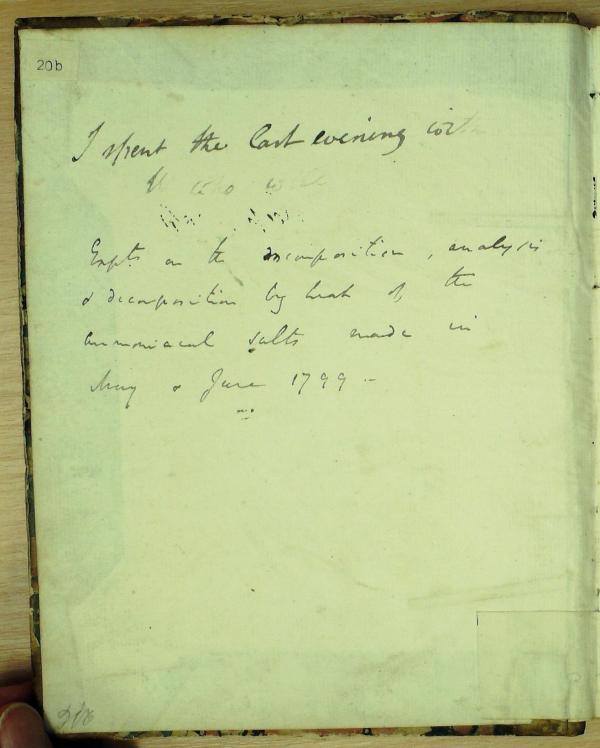 20b
I spent the last evening with
who
Expts on the decomposition, analysis
& decomposition by heat of the
ammoniacal salts made in
May & June 1799 -